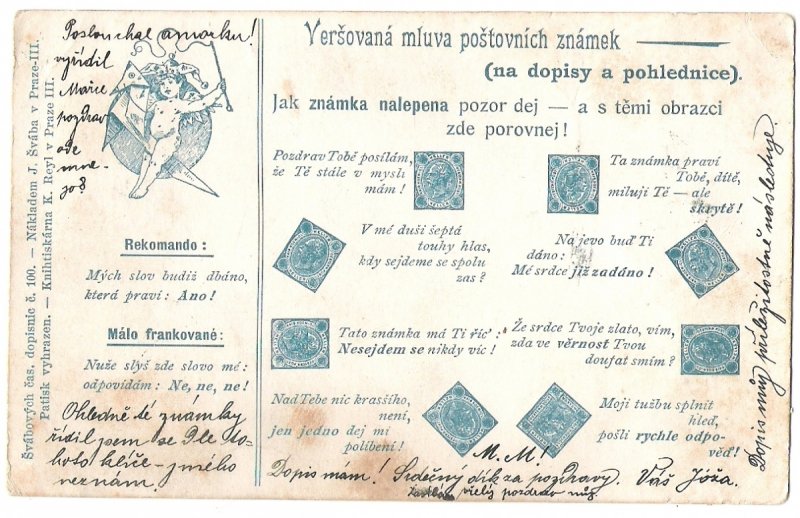 Švábových čas. dopisnic č. 100. — Nákladem J. Švába v Praze-III.
Patisk vyhrazen. — Knihtiskárna K. Reyl v Praze III.
Poslouchal amorku!
vyřídil
Mařce
pozdrav
ode
mne-
jo?
Rekomando:
Mých slov budiž dbáno,
která praví: Ano!
Málo frankované:
Nuže slyš zde slovo mé:
odpovídám: Ne, ne, ne!
Ohledně té známky
řídil jsem se Dle to-
hoto klíče – jiného
neznám.
Veršovaná mluva poštovních známek
(na dopisy a pohlednice).
Jak známka nalepena pozor dej — a s těmi obrazci
zde porovnej!
Pozdrav Tobě posílám,
že Tě stále v mysli
mám!
Ta známka praví
Tobě, dítě,
miluji Tě — ale
skrytě!
V mé duši šeptá
touhy hlas,
kdy sejdeme se spolu
zas?
Na jevo buď Ti
dáno:
Mé srdce již zadáno!
Tato známka má Ti říc':
Nesejdem se nikdy víc!
Že srdce Tvoje zlato, vím,
zda ve věrnost Tvou
doufat smím?
Nad Tebe nic krassího,
není,
jen jedno dej mi
políbení!
Moji tužbu splnit
hleď,
pošli rychle odpo-
věď!
M. M!
Dopis mám! Srdečný dík za pozdravy. Váš Jóža.
pozdrav
Dopis můj příležitostně následuje.